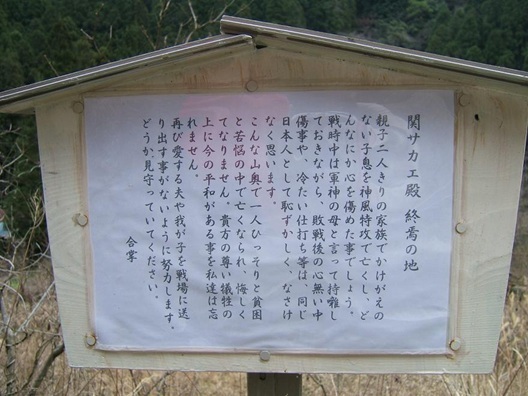 関サカエ殿 終焉の地
親子二人きりの家族でかけがえの
ない子息を神風特攻で亡くし、ど
んなにか心を傷めた事でしょう。
戦時中は軍神の母と言って持囃し
ておきながら、敗戦後の心無い中
傷事や、冷たい仕打ち等は、同じ
日本人として恥ずかしく、なさけ
なく思います。
こんな山奥で一人ひっそりと貧困
と苦悩の中で亡くなられ、悔しく
てなりません。貴方の尊い犠牲の
上に今の平和がある事を私達は忘
れません。
再び愛する夫や我が子を戦場に送
り出す事がないように努力します。
どうか見守っていてください。
合掌